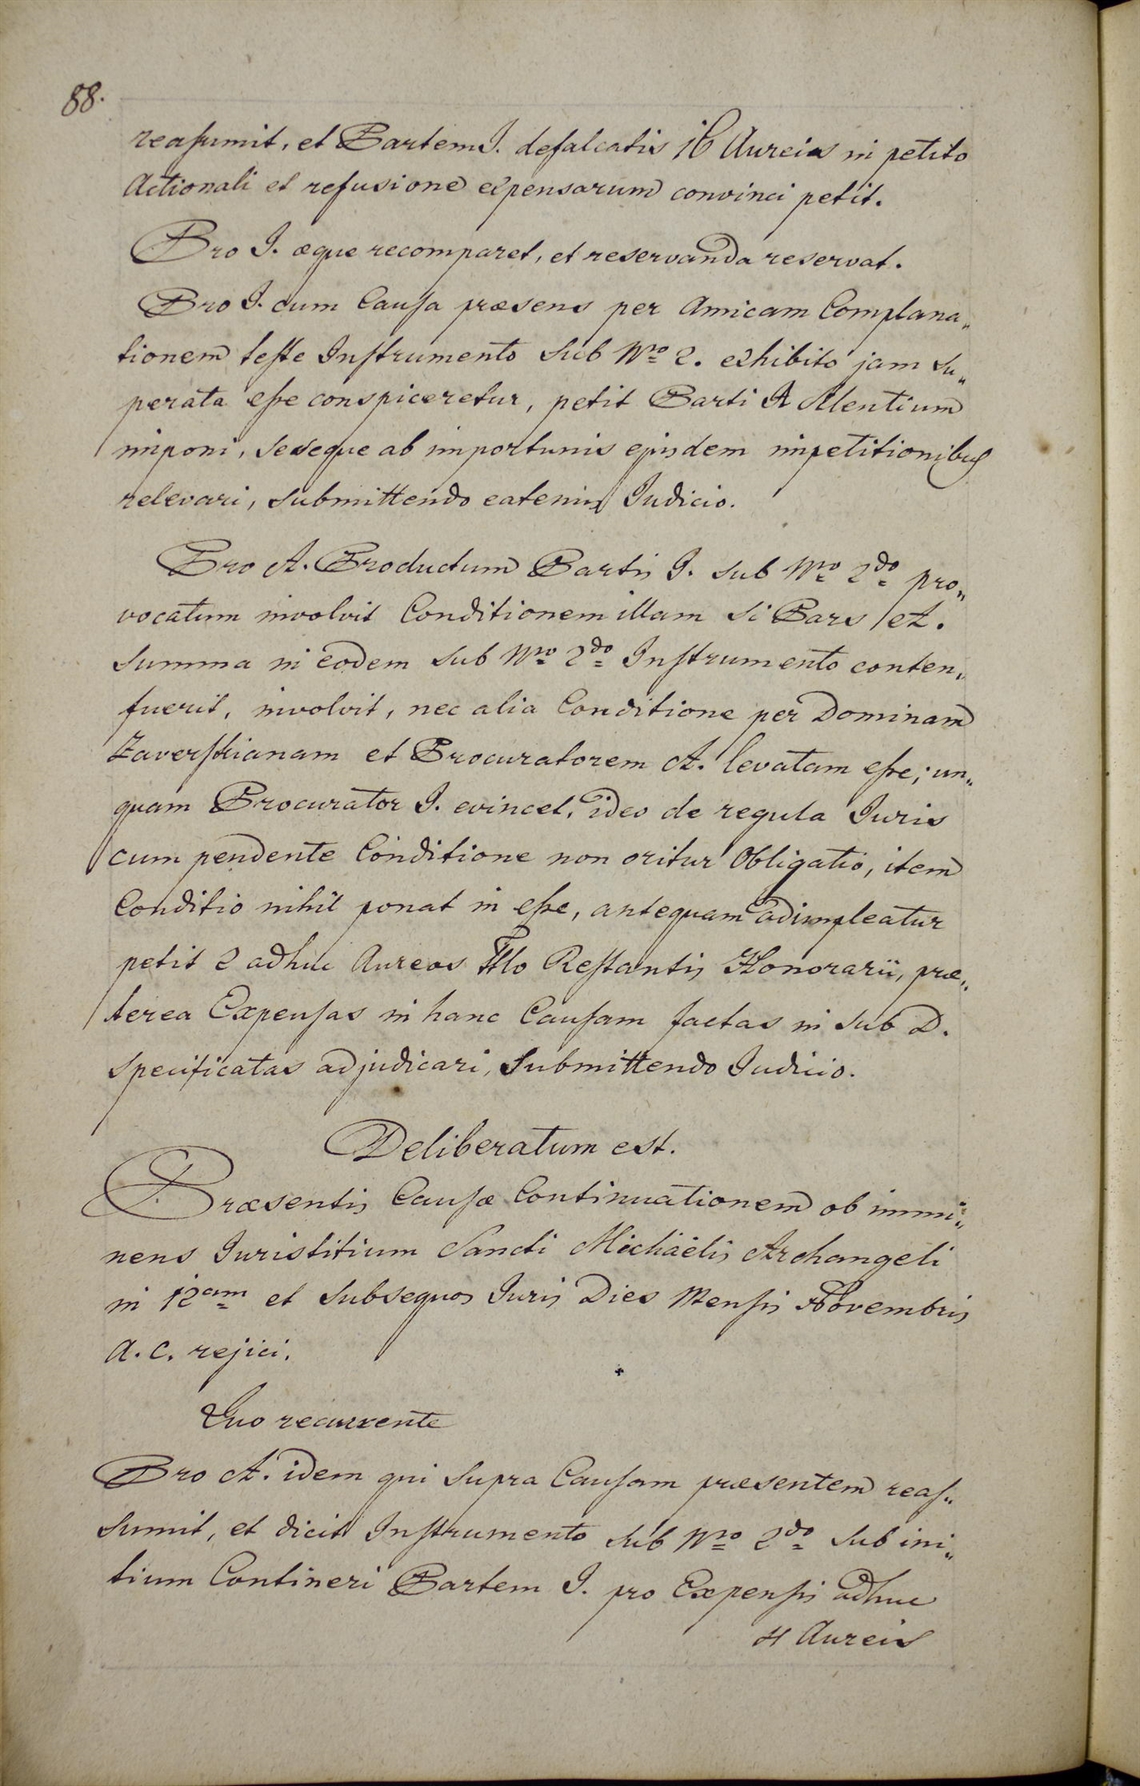 88.
reassumit, et Partem I. defalcatis 16 Aureis in petito
Actionali et refusione expensarum convinci petit.
Pro I. æque recomparet, et reservanda reservat.
Pro I. cum Causa præsens per Amicam Complana„
tionem teste Instrumento sub Nro 2. exhibito jam su„
perata esse conspiceretur, petit Parti A Silentium
imponi, seseque ab importunis ejusdem impetitionibus
relevari, submittendo eatenus Iudicio.
Pro A. Productum Partis I. sub Nro 2do pro„
vocatum involvit Conditionem illam si Pars A.
summa in eodem sub Nro 2do Instrumento conten„
fuerit, involvit, nec alia Conditione per Dominam
Zaverskianam et Procuratorem A. levatam esse; un„
quam Procurator I. evincet, ideo de regula Iuris
cum pendente Conditione non oritur Obligatio, item
Conditio nihil ponat in esse, antequam adimpleatur
petit 2 adhuc Aureos Ttlo Restantis Honorarii, præ„
terea Expensas in hanc Causam factas in sub D.
specificatas adjudicari, submittendo Iudicio.
Deliberatum est.
Præsentis Causæ Continuationem ob immi„
nens Iuristitium Sancti Michaëlis Archangeli
in 12am et subsequos Iuris Dies Mensis Novembris
a. c. rejici.
Quo recurrente
Pro A. idem qui supra Causam præsentem reas„
sumit, et dicit Instrumento sub Nro 2do sub ini„
tium Contineri Partem I. pro Expensis adhuc
4 Aureis